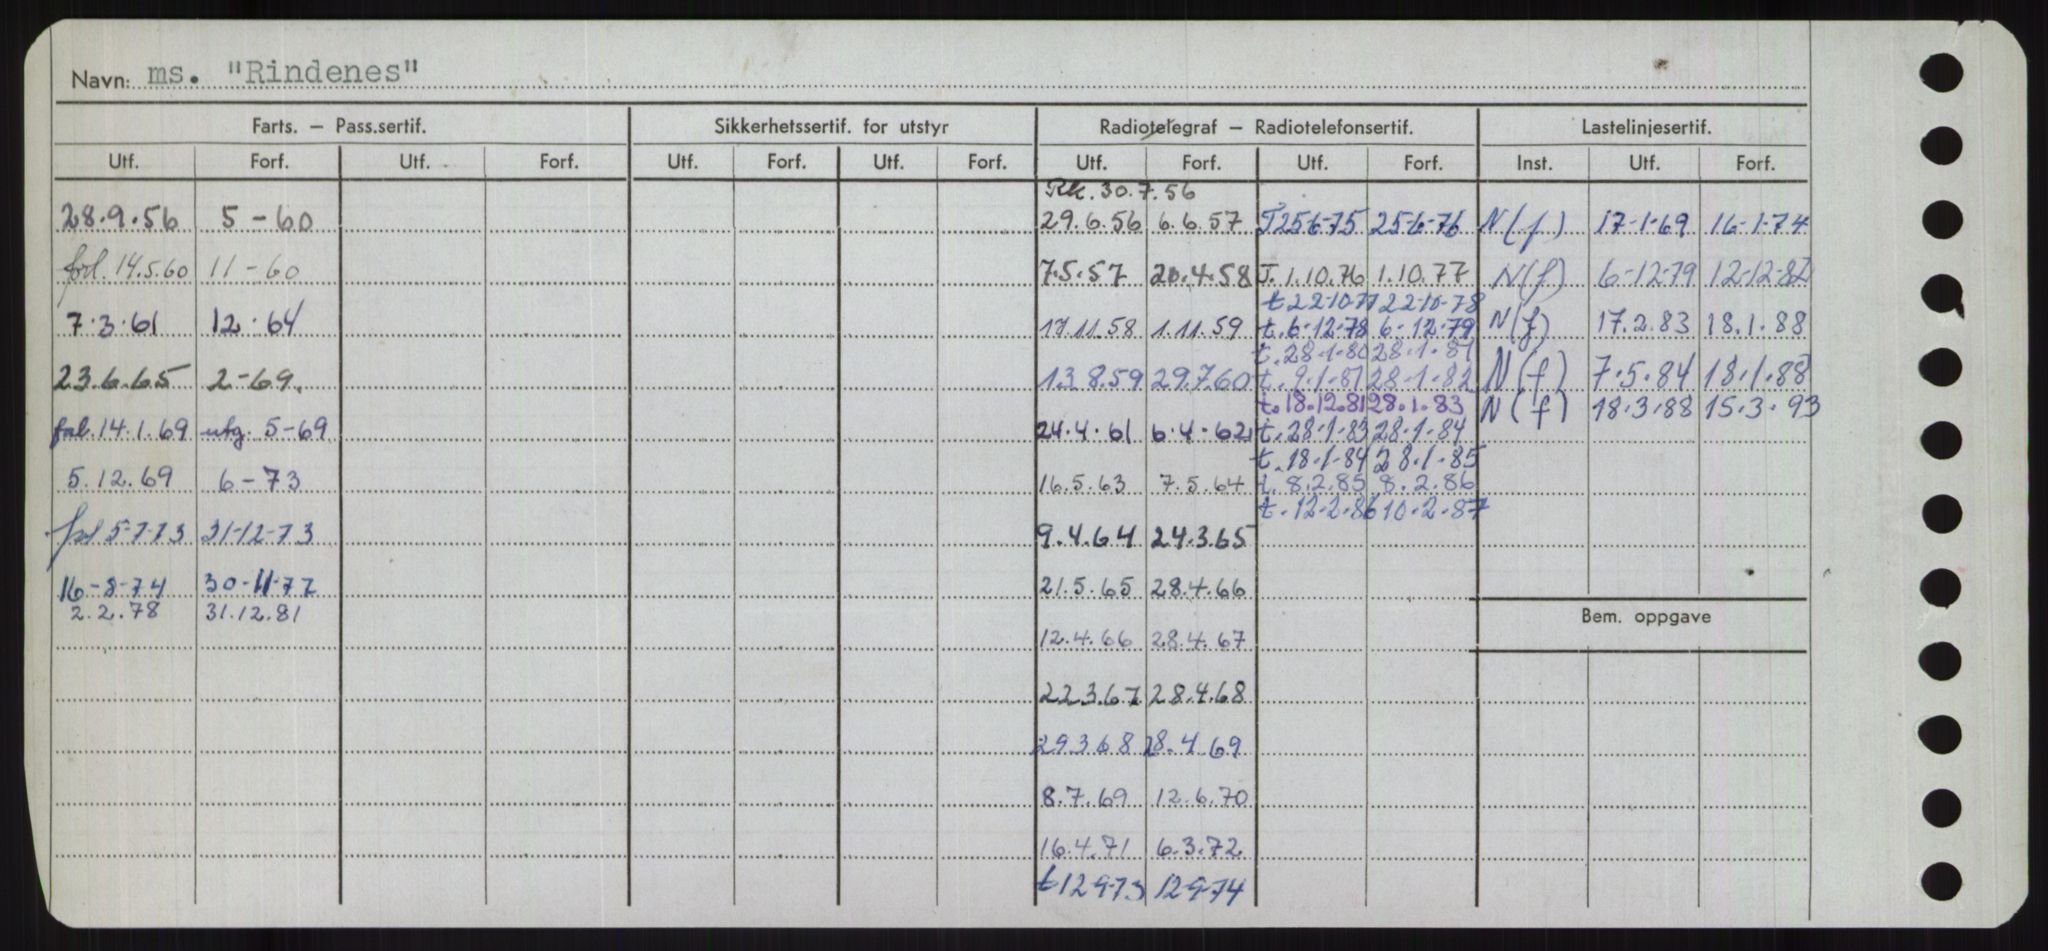 Navn: ms. "Rindenes"
Farts. – Pass.sertif. Sikkerhetssertif. for utstyr Radiotelegraf – Radiotelefonsertif. Lastelinjesertif.
Utf. Forf. Utf. Forf. Utf. Forf. Utf. Forf. Utf. Forf. Utf. Forf. Inst. Utf. Forf.
30.7.56
28.9.56 5-60 29.6.56 6.6.57 T 25-6-75 25-6-76 N(f) 17-1-69 16-1-74
forl. 14.5.60 11-60 7.5.57 20.4.58 T. 1.10.76 1.10.77 N(f) 6-12-79 12-12-82
t 22-10-77 22-10-78
7.3.61 12.64 17.11.58 1.11.59 t. 6-12-78 6-12-79 N(f) 17.2.83 18.1.88
t. 28-1-80 28-1-81
23.6.65 2-69. 13.8.59 29.7.60 t. 9.1-81 28-1-82 N(f) 7.5.84 18.1.88
t. 18.12.81 28.1.83 N(f) 18.3.88 15.3.93
forl. 14.1.69 utg. 5-69 24.4.61 6.4.62 t. 28-1-83 28-1-84
t. 18-1-84 28.1.85
5.12.69 6-73 16.5.63 7.5.64 t. 8.2.85 8.2.86
t. 12-2-86 10-2-87
forl 5-7-73 31-12-73 9.4.64 24.3.65
16-8-74 30-11-77 21.5.65 28.4.66
2.2.78 31.12.81
Bem. oppgave
12.4.66 28.4.67
22.3.67 28.4.68
29.3.68 28.4.69
8.7.69 12.6.70
16.4.71 6.3.72
t 12-9-73 12-9-74